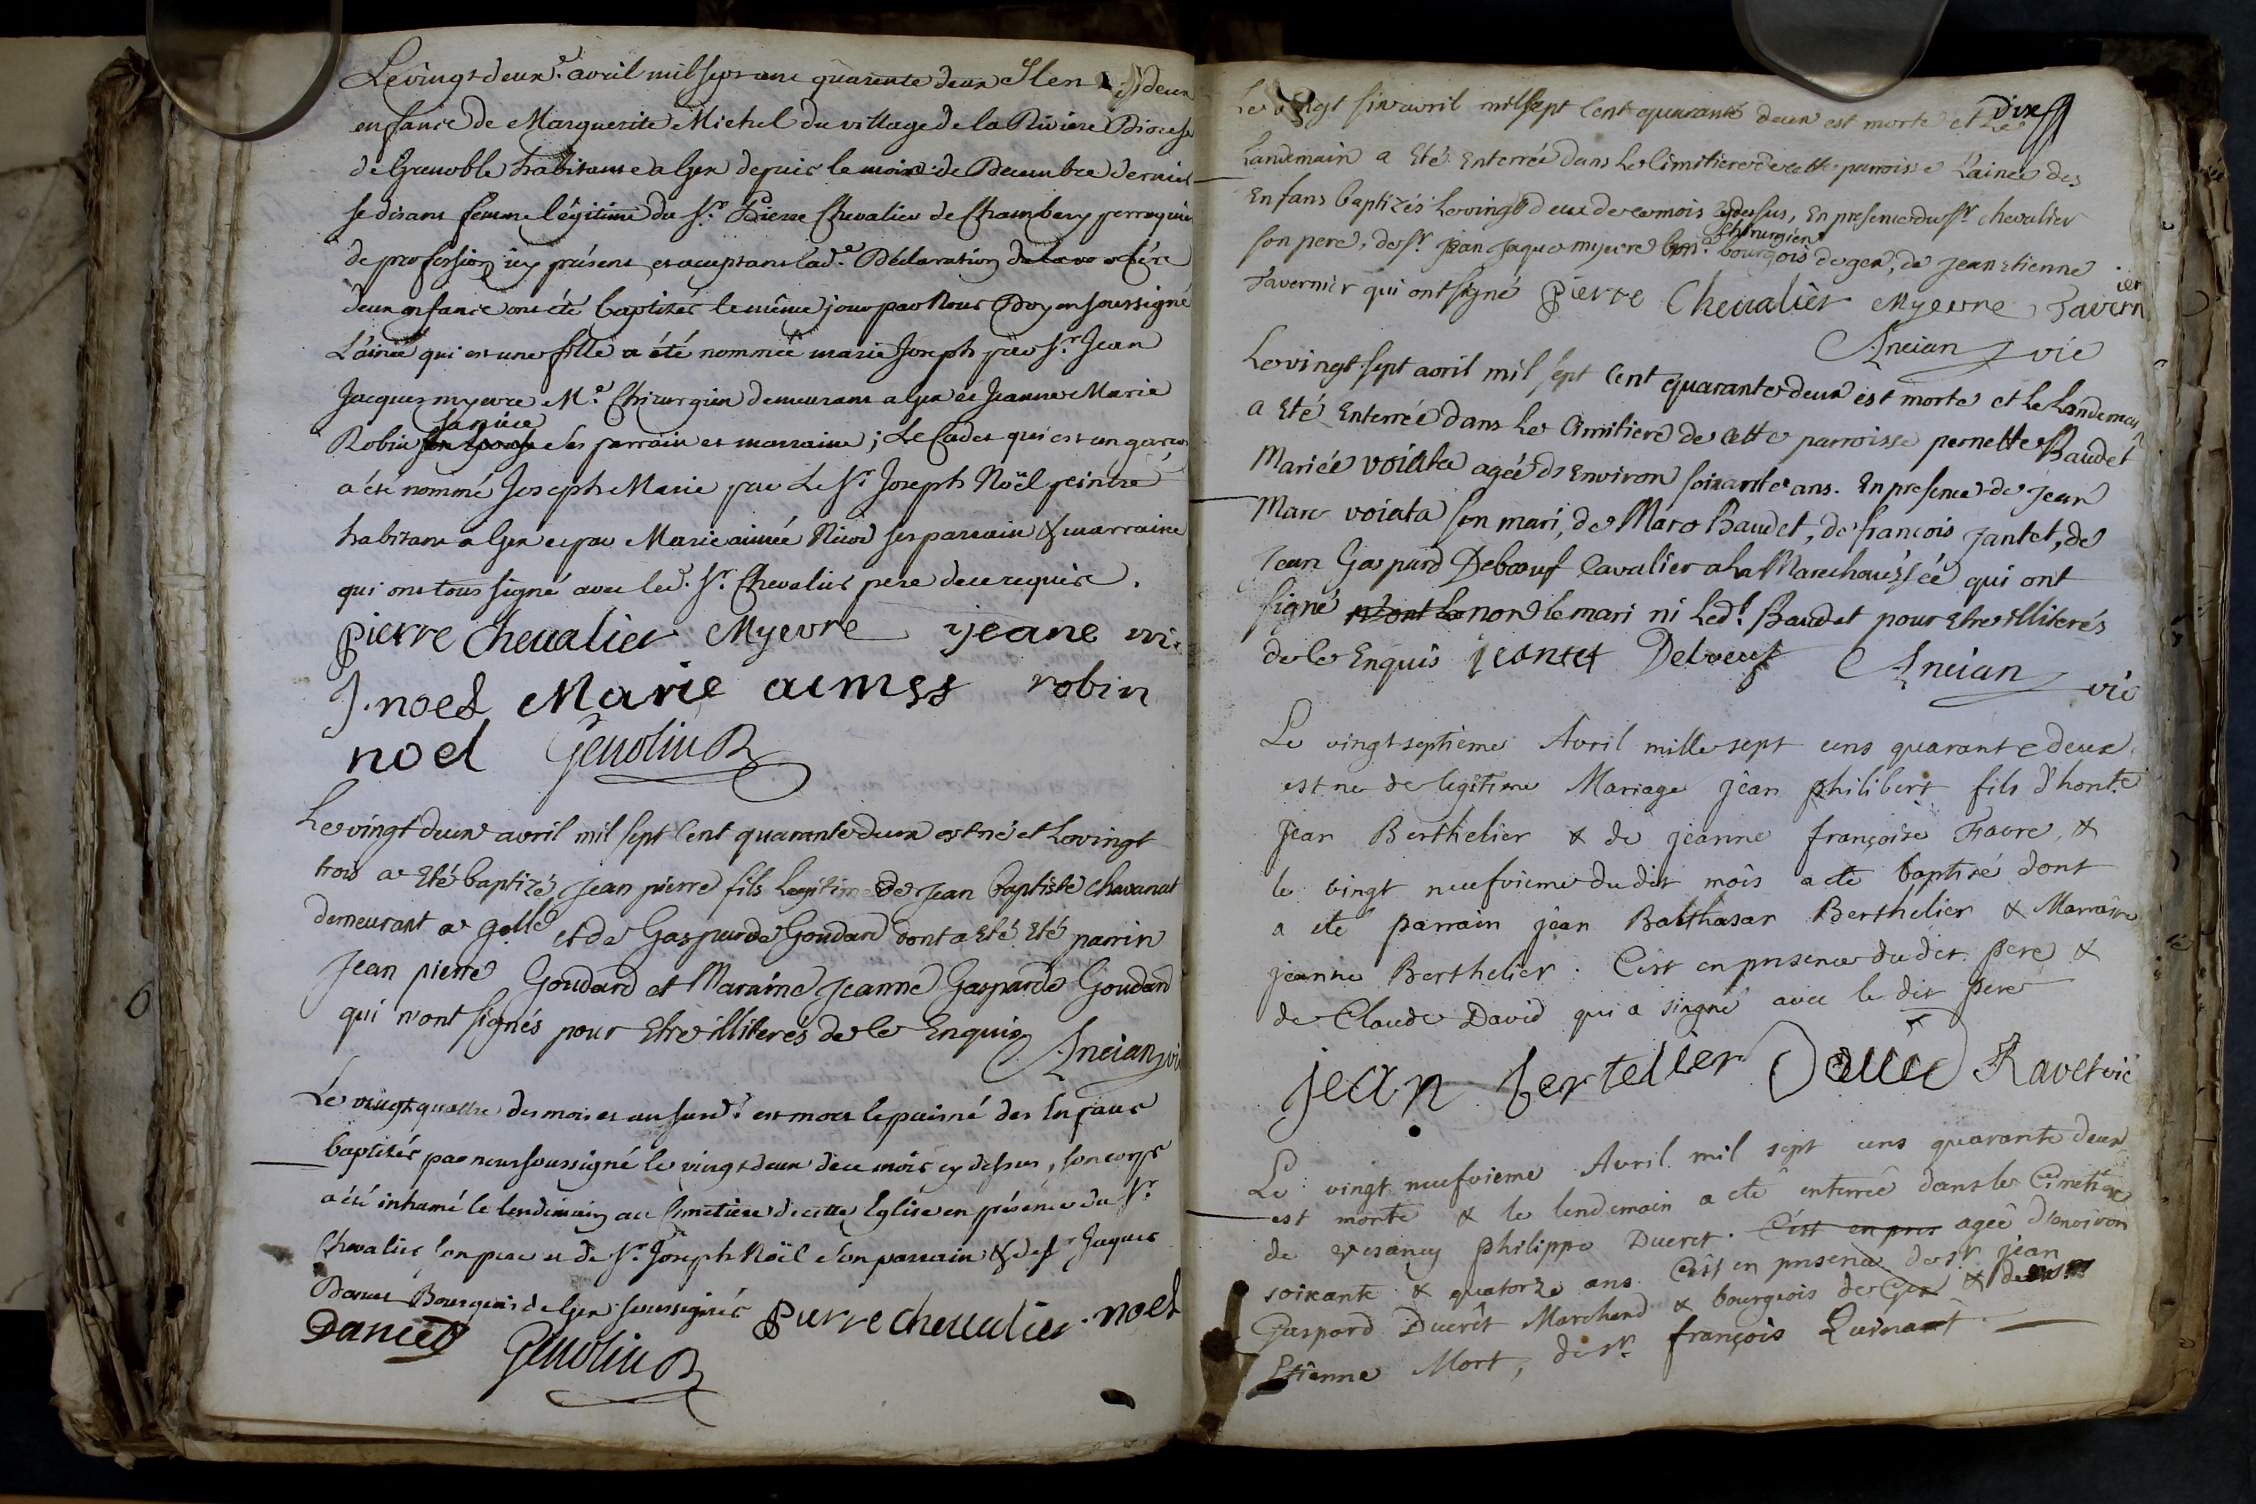 Le vingt deux.e avril mil sept cent quarante deux Il en deux
enfants de Marguerite Michel du village de la Riviere Diocese
de Grenoble habitante a Gex depuis le mois de Decembre dernier
se disant femme légitime du Sr. Pierre Chevalier de Chambery perruquier
de profession icy présent et acceptant lad.e Déclaration
deux enfants ont été baptizés le même jour par Nous Doyen soussigné
L'ainée qui est une fille a été nommée marie Joseph par Sr. Jean
Jacques myevre M.e Chirurgien demeurant a Gex et Jeanne Marie
Robin ses parrain et marraine ; Le Cadet qui est un garçon
a été nommé Joseph Marie par Le Sr Joseph Noël peintre
habitant a Gex et par Marie aimée Nicod ses parrain & marraine
qui ont tous signé avec led. Sr. Chevalier pere de ce requis.
Pierre Chevalier Myevre jeane
J. noel Marie robin
noel
Le vingt deux avril mil sept Cent quarante deux est né et Le vingt
trois a Eté baptizé Jean pierre fils Legitime de Jean baptiste Chavanat
demeurant a et de Gasparde Goudard dont a Eté Eté parrin
Jean pierre Goudard et Maraine Jeanne Gasparde Goudard
qui n'ont signés pour Etre illiterés de le Enquis
Ancian vic
Le vingt quatre des mois et an susd.s est mort le puisné des Enfans
baptizés par nous soussigné le vingt deux de ce mois cy dessus, son corps
a été inhumé le lendemain au Cimetiere de cette Eglise en présence du Sr.
Chevalier son pere et de Sr. Joseph Noël son parrain & de Sr Jaques
Dancet Bourgeois de Gex soussignés Pierre chevalier noel
Dancet
Le vingt six avril mil sept Cent quarante deux est morte et Le
Landemain a Eté Enterrée dans Le Cimitiere de cette parroisse L'ainée des
Enfans baptizés Le vingt deux de ce mois cy dessus, En presence du Sr chevalier
chirurgien
son pere, de Sr jean jaque myevre bourgois de gex, de jean etienne
Tavernier qui ont signé Pierre Chevalier Myevre Tavernier
Ancian vic
Le vingt sept avril mil sept Cent quarante deux est morte et Le Landemain
a Eté Enterrée dans Le Cimitiere de Cette parroisse pernette Baudet
Mariée voiata agée d Environ soixante ans. En presence de jean
Marc voiata son mari, de Marc Baudet, de francois jantet, de
Jean Gaspard Deboeuf Cavalier a La Marechaussée qui ont
signé n'ont non le mari ni Led.t Baudet pour Etre illiterés
de le Enquis jeantet Deboeuf Ancian
vic
Le vingt septieme Avril mille sept cens quarante deux
est ne de legitime Mariage jean philibert fils d'hon.te
jean Berthelier & de jeanne françoise Favre, &
le vingt neufvieme du dit mois a ete baptisé dont
a ete parrain jean Balthasar Berthelier & Marraine
jeanne Berthelier. C'est en presence du dit pere &
de Claude David qui a singné avec le dit pere
jean bertelier David Ravet vic
Le vingt neufvieme Avril mil sept cens quarante deux
est morte & le lendemain a ete enterrée dans le Cimetiere
de vesancy philippe Dueret. C'est en pres agée d'environ
soixante & quatorze ans. C'est en presence de Sr. jean
Gaspard Dueret Marchand & bourgeois de Gex &
Etienne Mort, de Sr. françois